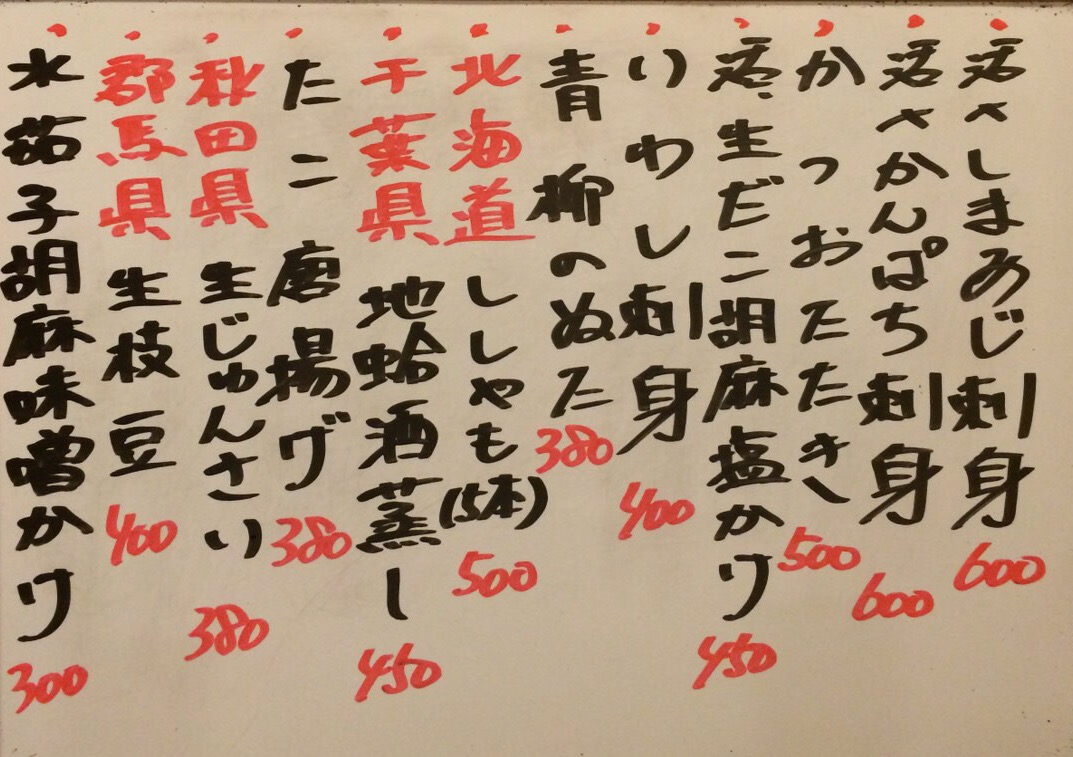 活〆しまあじ刺身 600
活〆かんぱち刺身 600
かつおたたき 500
活生だこ胡麻塩かけ 450
いわし刺身 400
青柳のぬた 380
北海道ししゃも(5本) 500
千葉県地蛤酒蒸し 450
たこ唐揚げ 380
秋田県生じゅんさい 380
郡馬県生枝豆 400
水茄子胡麻味噌かけ 300